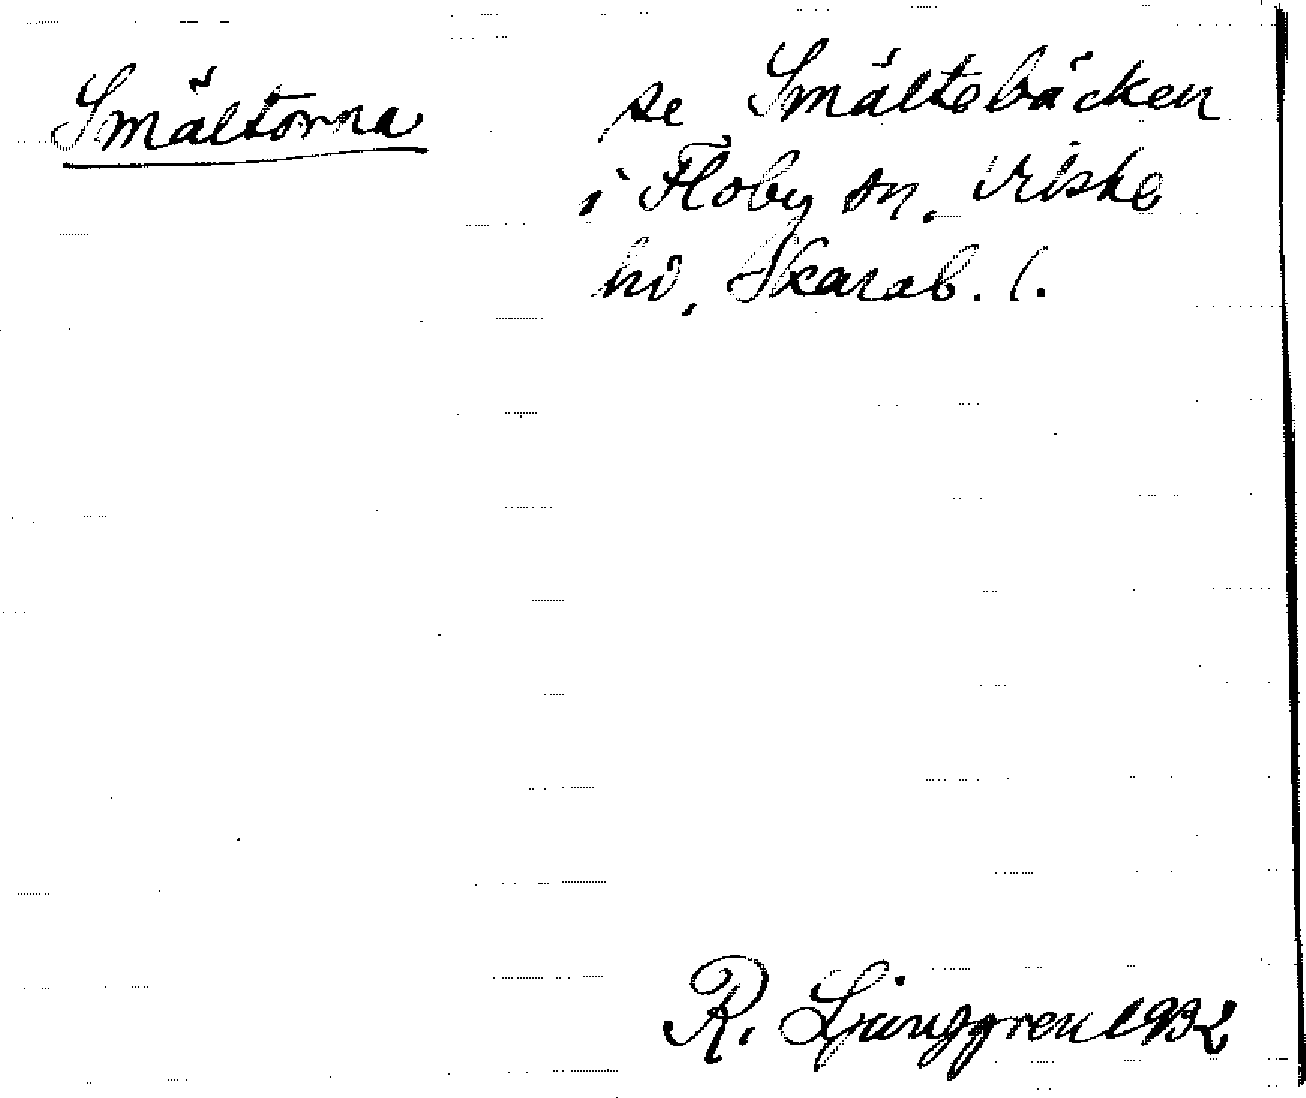 Smältorna
se Smältebäcken
i Floby sn, Vilske
hd, Skarab. l.
R. Ljunggren 1932